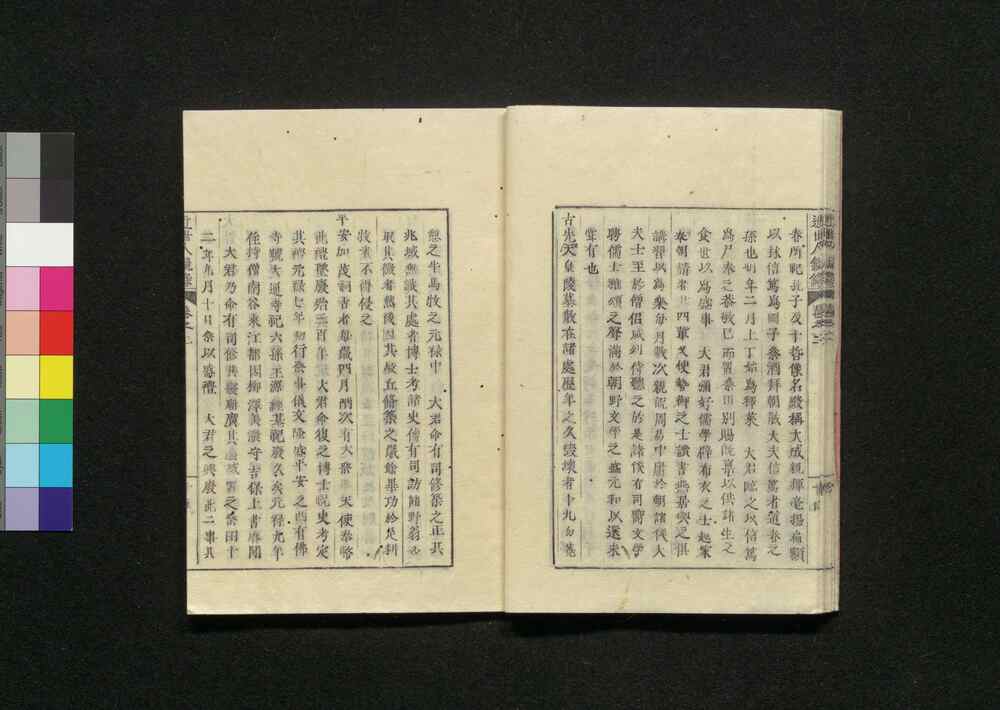 近世人鏡録 卷之二
春所祀孔子及十哲像名殿稱大成親揮毫揭扁額
以林信篤爲國子祭酒拜朝散大夫信篤者道春之
孫也明年二月上丁始爲釋菜 大君臨之以信篤
爲尸奉之恭敬已而置祭田別賜既稟以供諸生之
食世以爲盛事 大君頗好儒學辟布衣之士起家
奉朝請者 四輩又使勢御之士讀書 其與之俱
講習以爲樂每月數次親說周易中庸於朝諸侯大
夫士至於僧侶咸到傍聽之於是諸侯有司爾文學
聘儒士雅頌之聲滿於朝野文學之盛元和以還未
嘗有也
古先天皇陵墓散在諸處歷年之久毀壞者十九勿薨
之牛馬牧之元祿中 大君命有司修築之正其
兆域無識其處者博士考諸史傳有司訪諸野翁
取其徵者焉後因其故丘修築之嚴 畢功於是耕
牧者不得侵之
平安加茂祠古者每歲四月酒次有大祭 天使奉幣
此禮墜廢殆三百年 大君命復之博士祝史考定
其禮元祿七年初行祭事儀文隆盛平安之西有佛
寺號大通寺祀六孫王源經基祀廢久矣元祿九年
住持僧南谷來江都因柳澤美濃守吉保上書庸聞
大君乃命有司修其寢廟廣其 置之祭田十
二年九月十日祭以盛禮 大君之興廢此二事具
近世人鏡録 卷之二